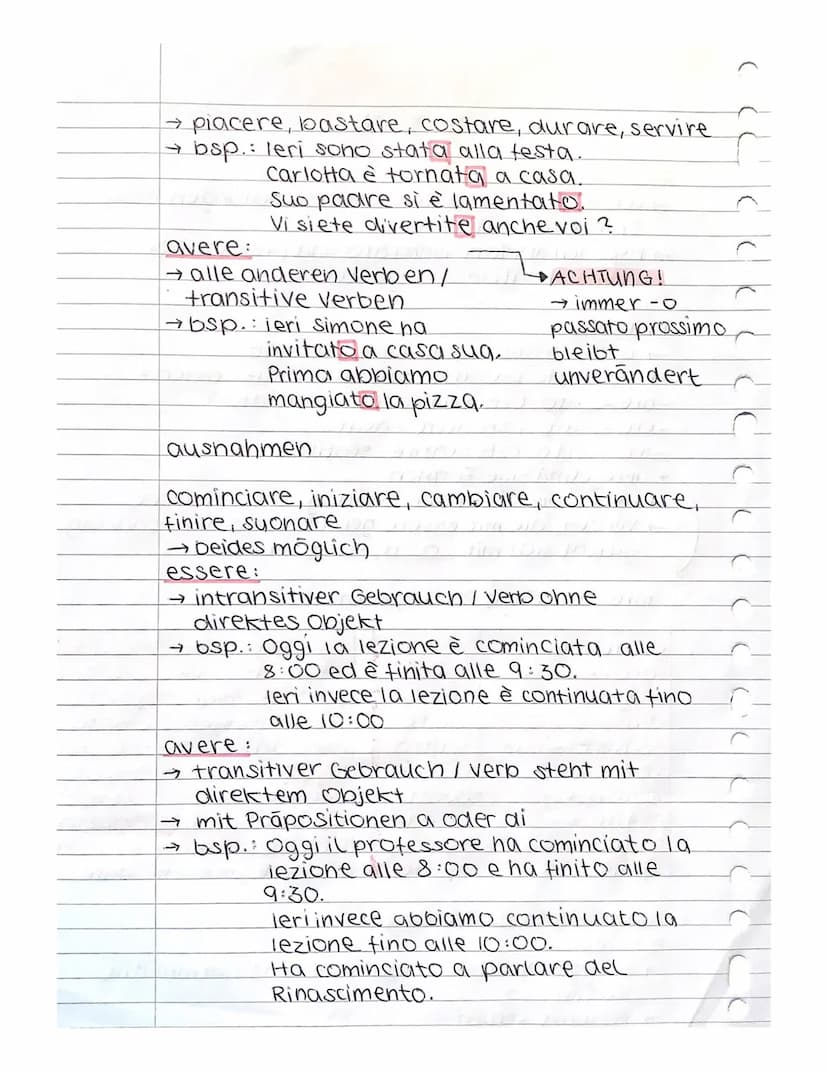 → piacere, bastare, costare, durare, servire
→ bsp.: Ieri sono stata alla festa.
Carlotta è tornata a casa.
Suo padre si è lamentato.
Vi siete divertite anche voi?
avere:
→ alle anderen Verben /
transitive Verben
→ bsp.: ieri Simone ha
invitato a casa sua.
Prima abbiamo
mangiato la pizza.
ACHTUNG!
→ immer -o
passato prossimo
bleibt
unverändert
ausnahmen
cominciare, iniziare, cambiare, continuare,
finire, suonare
→ beides möglich
essere:
→ intransitiver Gebrauch / Verb ohne
direktes Objekt
→ bsp.: Oggi la lezione è cominciata alle
8:00 ed è finita alle 9:30.
Ieri invece la lezione è continuata fino
alle 10:00
avere:
→ transitiver Gebrauch / verb steht mit
direktem Objekt
→ mit Präpositionen a oder di
→ bsp.: Oggi il professore ha cominciato la
lezione alle 8:00 e ha finito alle
9:30.
Ieri invece abbiamo continuato la
lezione fino alle 10:00.
Ha cominciato a parlare del
Rinascimento.